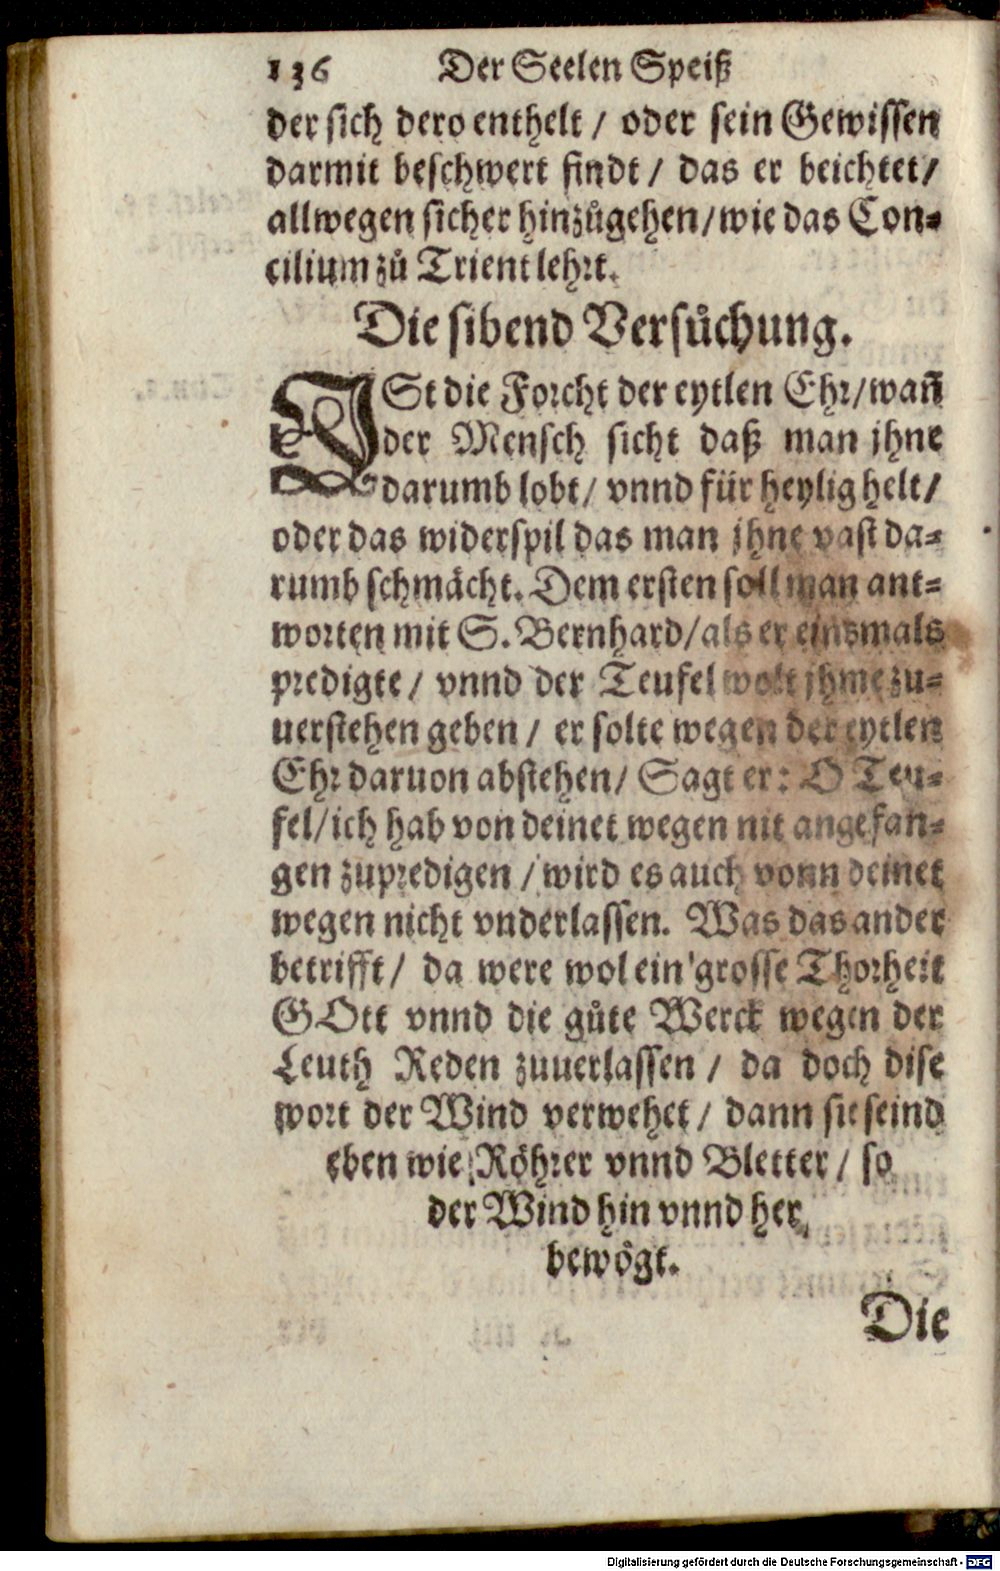 136 Der Seelen Speiß
der sich dero enthelt / oder sein Gewissen
darmit beschwert findt / das er beichtet /
allwegen sicher hinzůgehen / wie das Con⸗
cilium zů Trient lehrt.
Die sibend Versůchung.
ISt die Forcht der eytlen Ehr / wañ
der Mensch sicht daß man jhne
darumb lobt / vnnd für heylig helt /
oder das widerspil das man jhne vast da⸗
rumb schmächt. Dem ersten soll man ant⸗
worten mit S. Bernhard / als er einsmals
predigte / vnnd der Teufel wolt jhme zu⸗
uerstehen geben / er solte wegen der eytlen
Ehr daruon abstehen / Sagt er: O Teu⸗
fel / ich hab von deinet wegen nit angefan⸗
gen zupredigen / wird es auch vonn deinet
wegen nicht vnderlassen. Was das ander
betrifft / da were wol ein grosse Thorheit
GOtt vnnd die gůte Werck wegen der
Leuth Reden zuuerlassen / da doch dise
wort der Wind verwehet / dann sie seind
eben wie Röhrer vnnd Bletter / so
der Wind hin vnnd her
bewögt.
Die
Digitalisierung gefördert durch die Deutsche Forschungsgemeinschaft - DFG